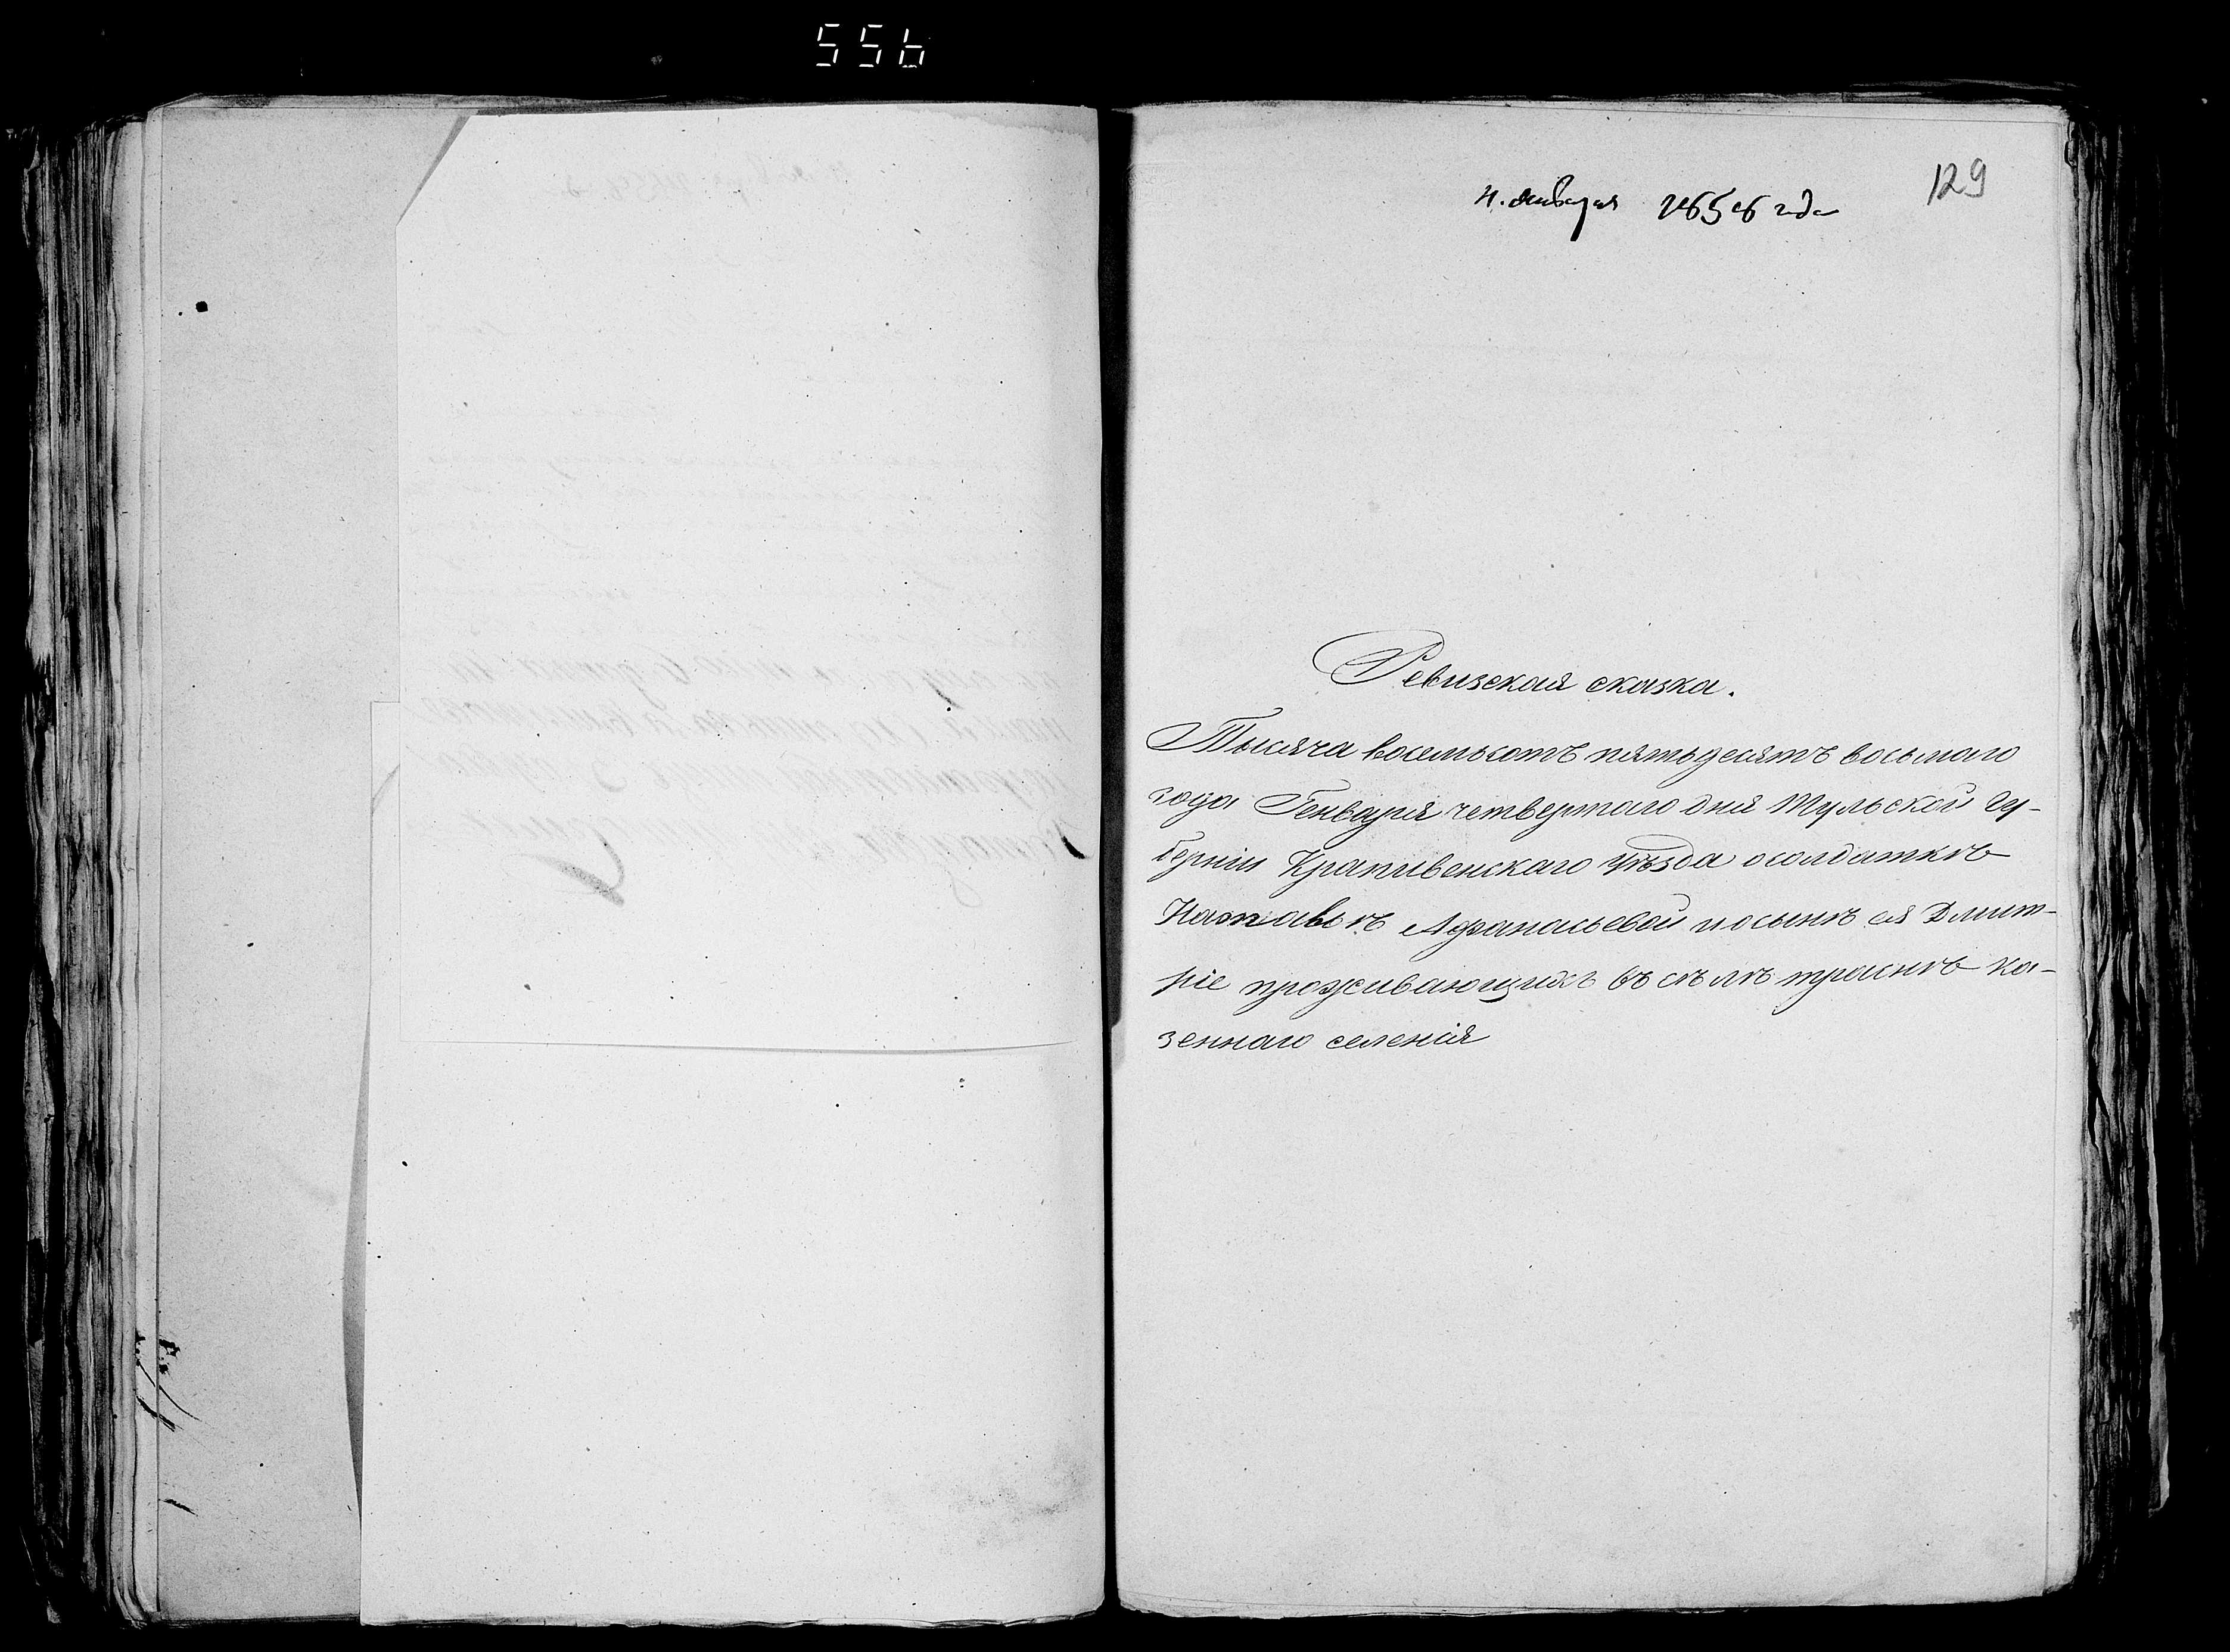 556
4. января 1858 года
129
Ревизская сказка.
Тысяча восемьсотъ пятьдесятъ восьмаго
года Генваря четвертаго дня Тульской Гу-
берніи Крапивенскаго уѣзда осолдаткѣ
Натальѣ Афанасьевой и осынѣ ея Дмит-
ріе проживающихъ въ сѣлѣ ка-
зеннаго селенія